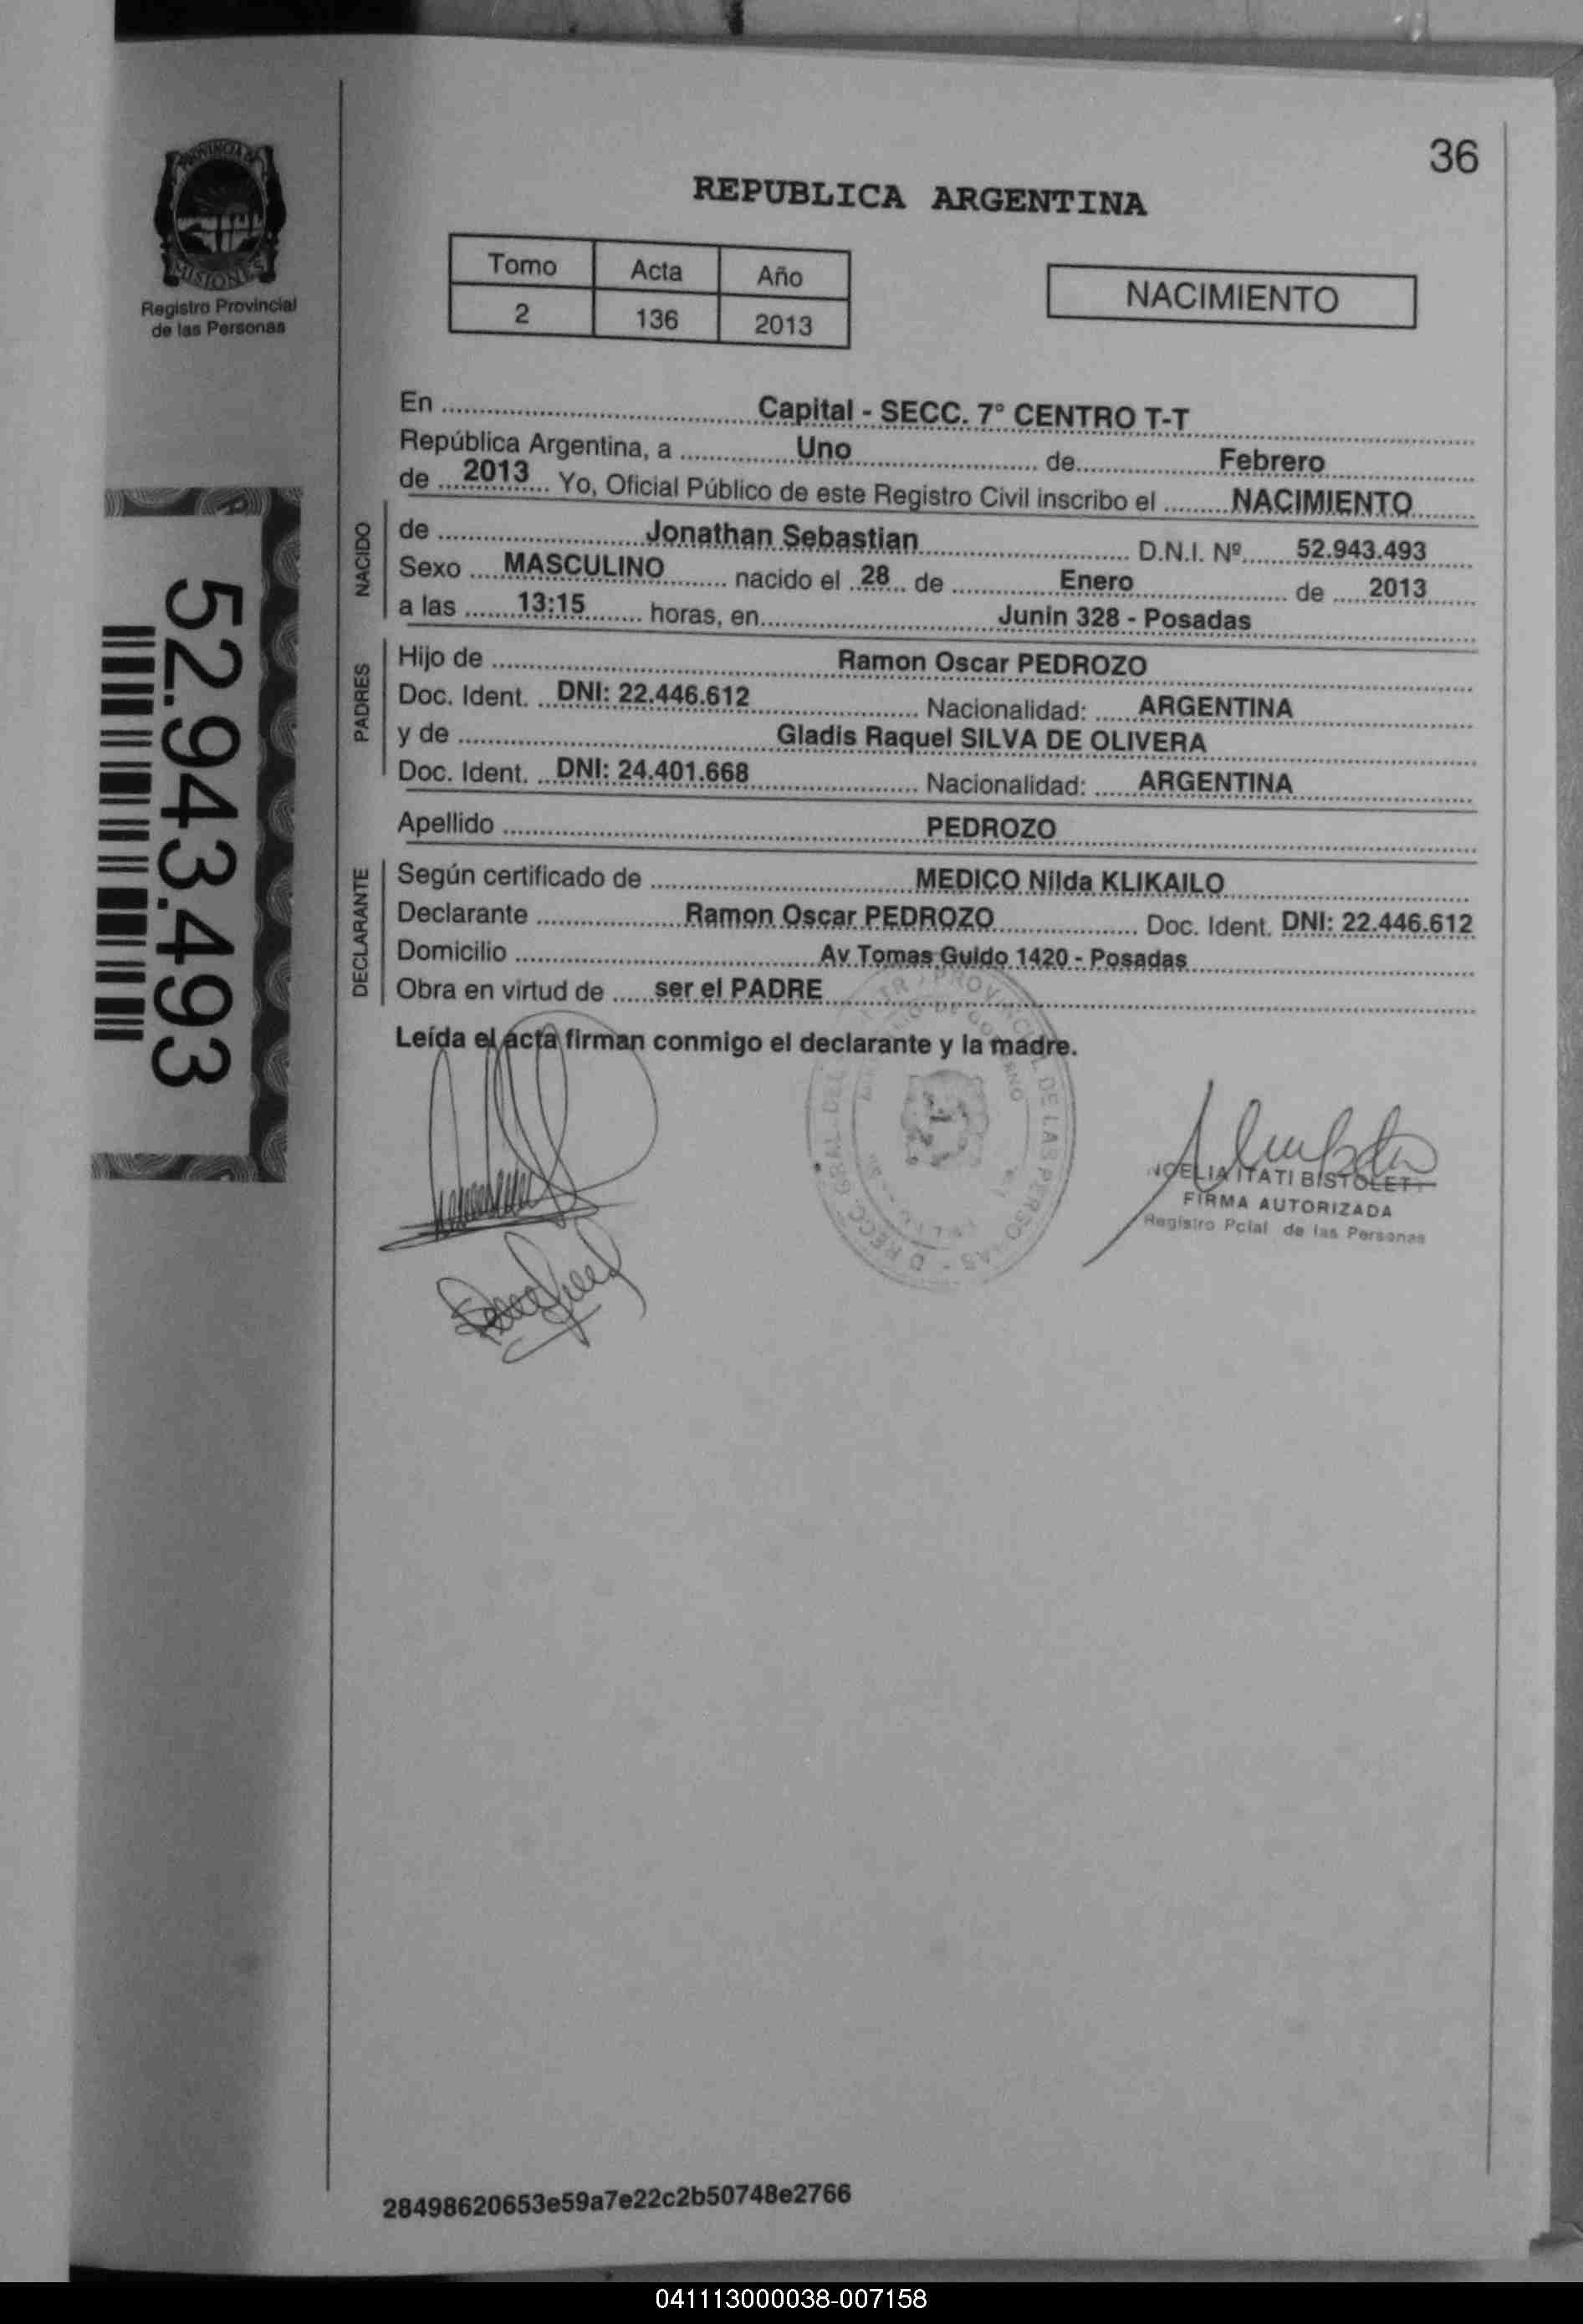 36
REPUBLICA ARGENTINA
PROVINCIA DE
MISIONES
Registro Provincial
de las Personas
Tomo Acta Año
2 136 2013
NACIMIENTO
En Capital - SECC. 7° CENTRO T-T
República Argentina, a Uno de Febrero
de 2013 Yo, Oficial Público de este Registro Civil inscribo el NACIMIENTO
NACIDO
de Jonathan Sebastian D.N.I. Nº 52.943.493
Sexo MASCULINO nacido el 28 de Enero de 2013
a las 13:15 horas, en Junin 328 - Posadas
PADRES
Hijo de Ramon Oscar PEDROZO
Doc. Ident. DNI: 22.446.612 Nacionalidad: ARGENTINA
y de Gladis Raquel SILVA DE OLIVERA
Doc. Ident. DNI: 24.401.668 Nacionalidad: ARGENTINA
Apellido PEDROZO
DECLARANTE
Según certificado de MEDICO Nilda KLIKAILO
Declarante Ramon Oscar PEDROZO Doc. Ident. DNI: 22.446.612
Domicilio Av Tomas Guido 1420 - Posadas
Obra en virtud de ser el PADRE
Leída el acta firman conmigo el declarante y la madre.
52.943.493
NOELIA ITATI BISTOLET
FIRMA AUTORIZADA
Registro Pcial de las Personas
28498620653e59a7e22c2b50748e2766
041113000038-007158